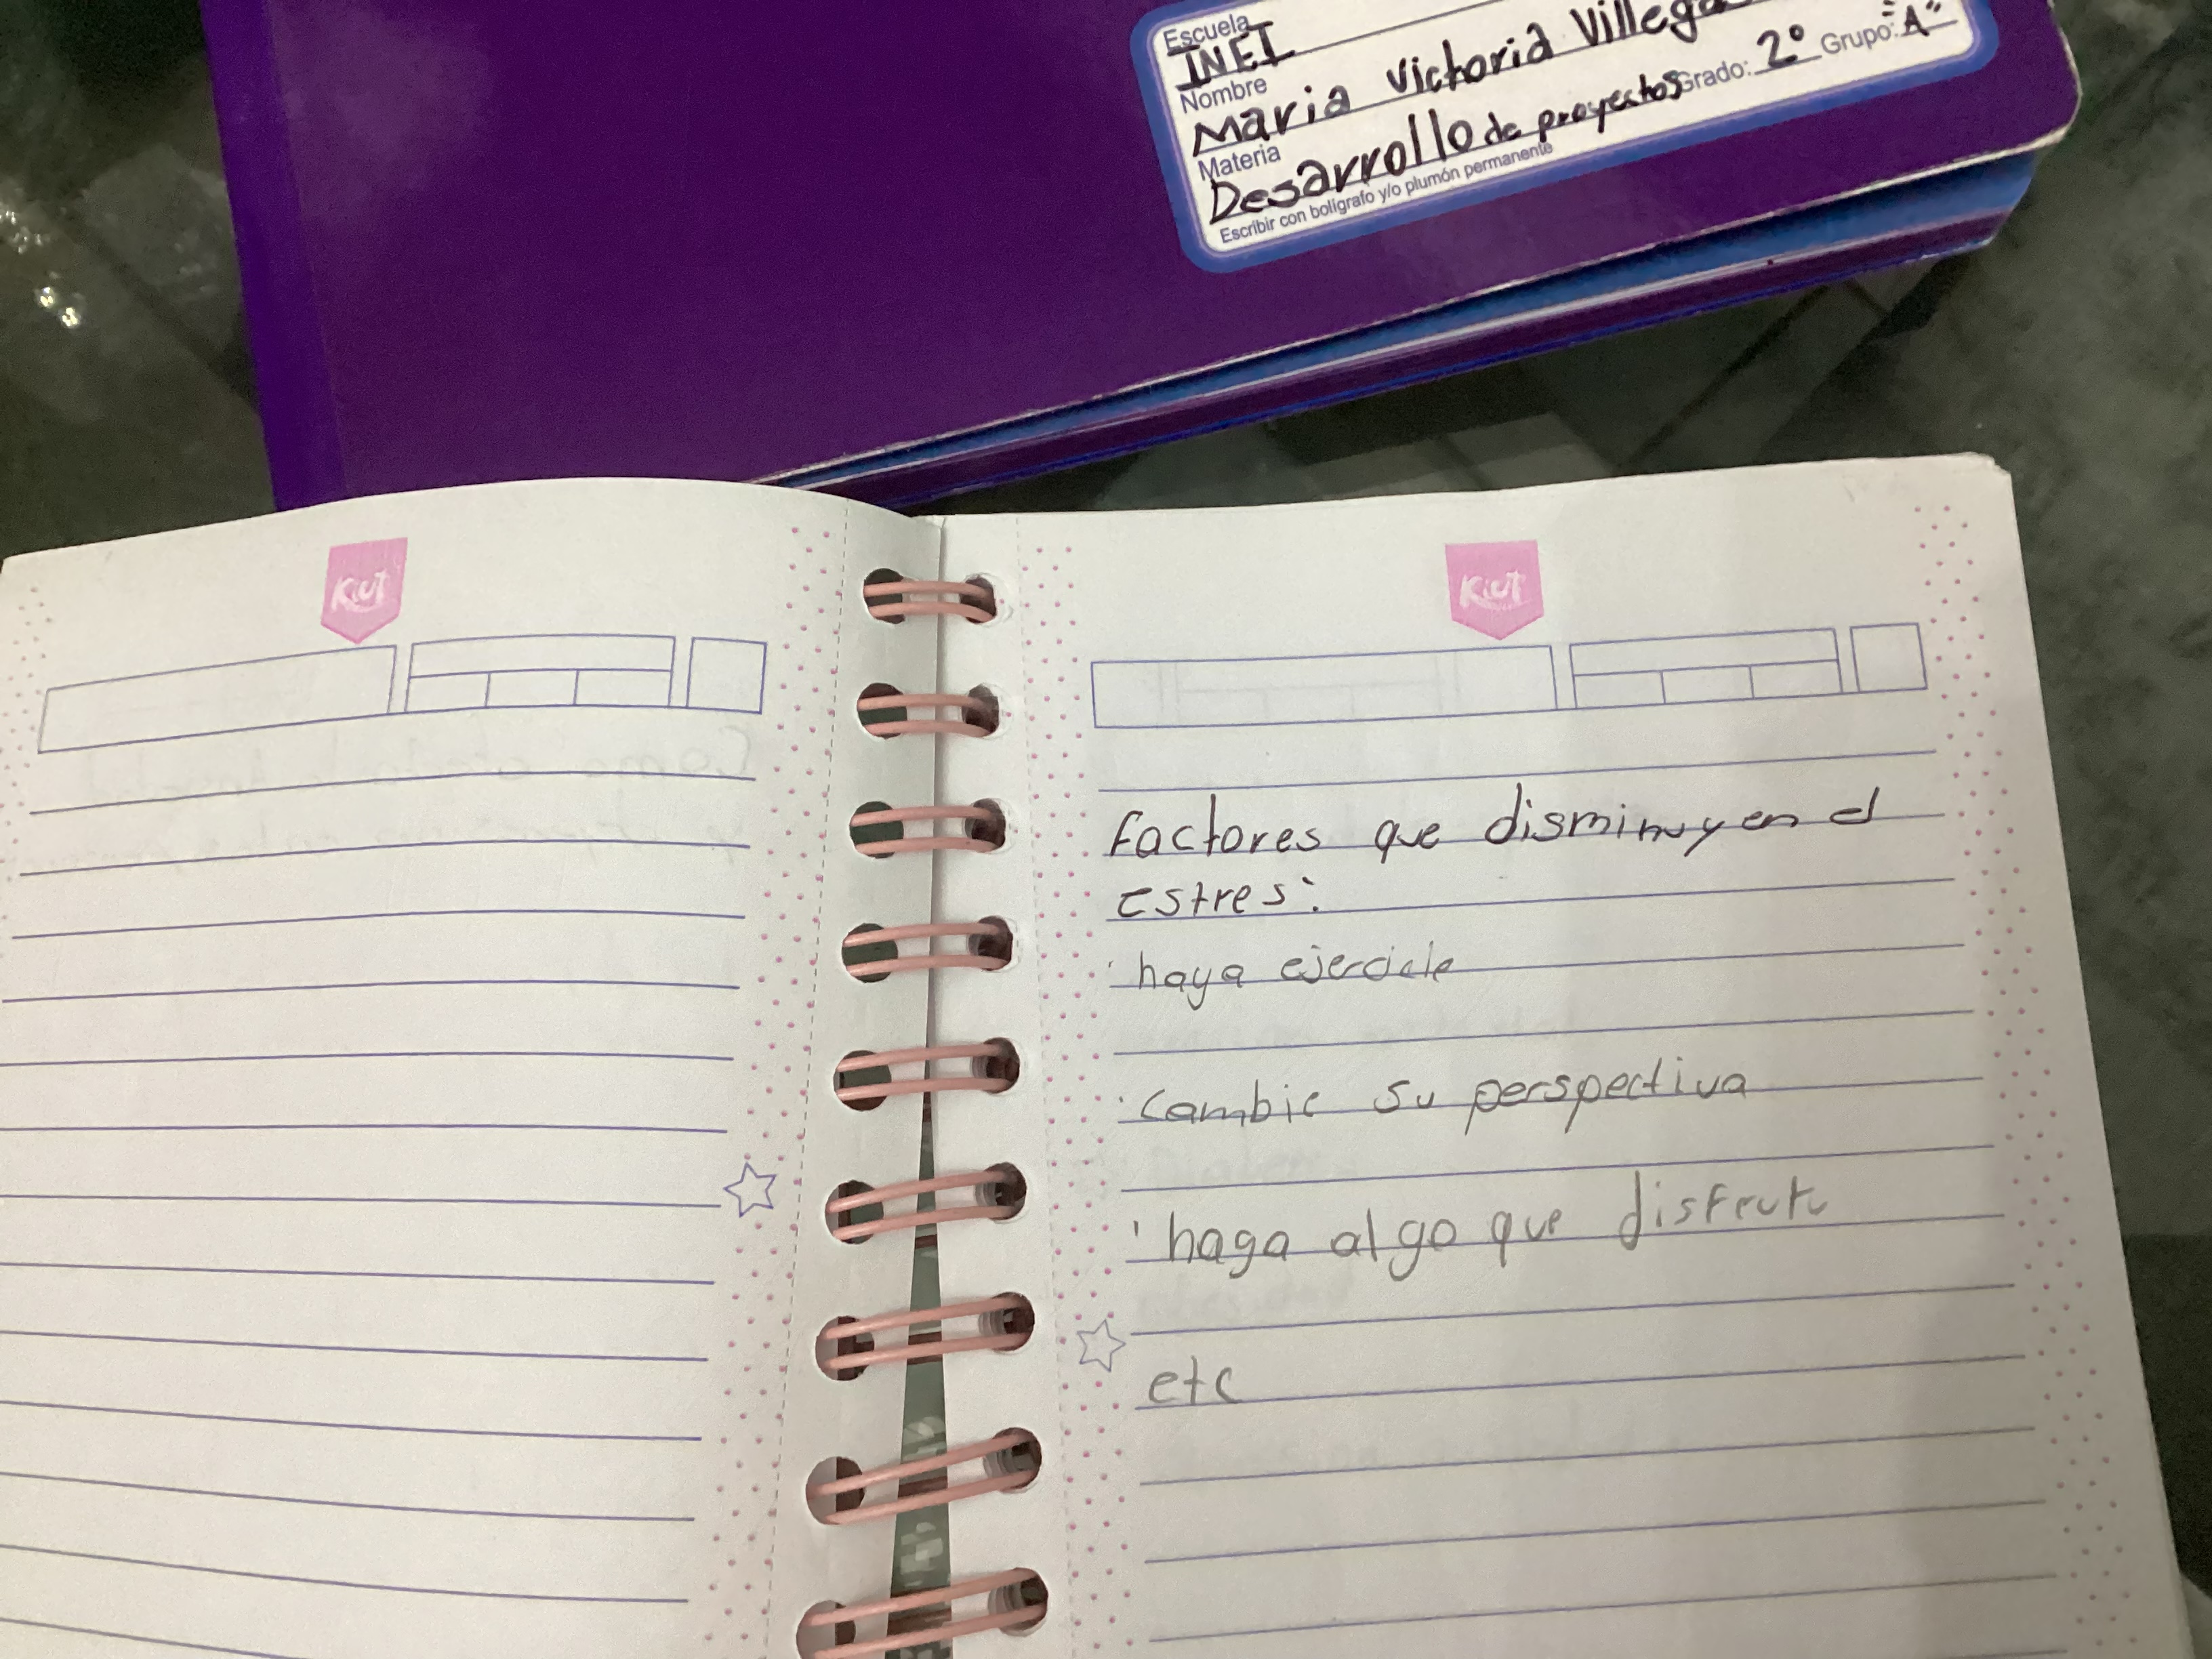 Escuela
INEI
Nombre
Maria Victoria Villega
Materia
Desarrollo de proyectos Grado: 2° Grupo: "A"
Escribir con bolígrafo y/o plumón permanente
Kiut
Kiut
Factores que disminuyen el
estres:
haya ejercicio
cambie su perspectiva
haga algo que disfrute
etc